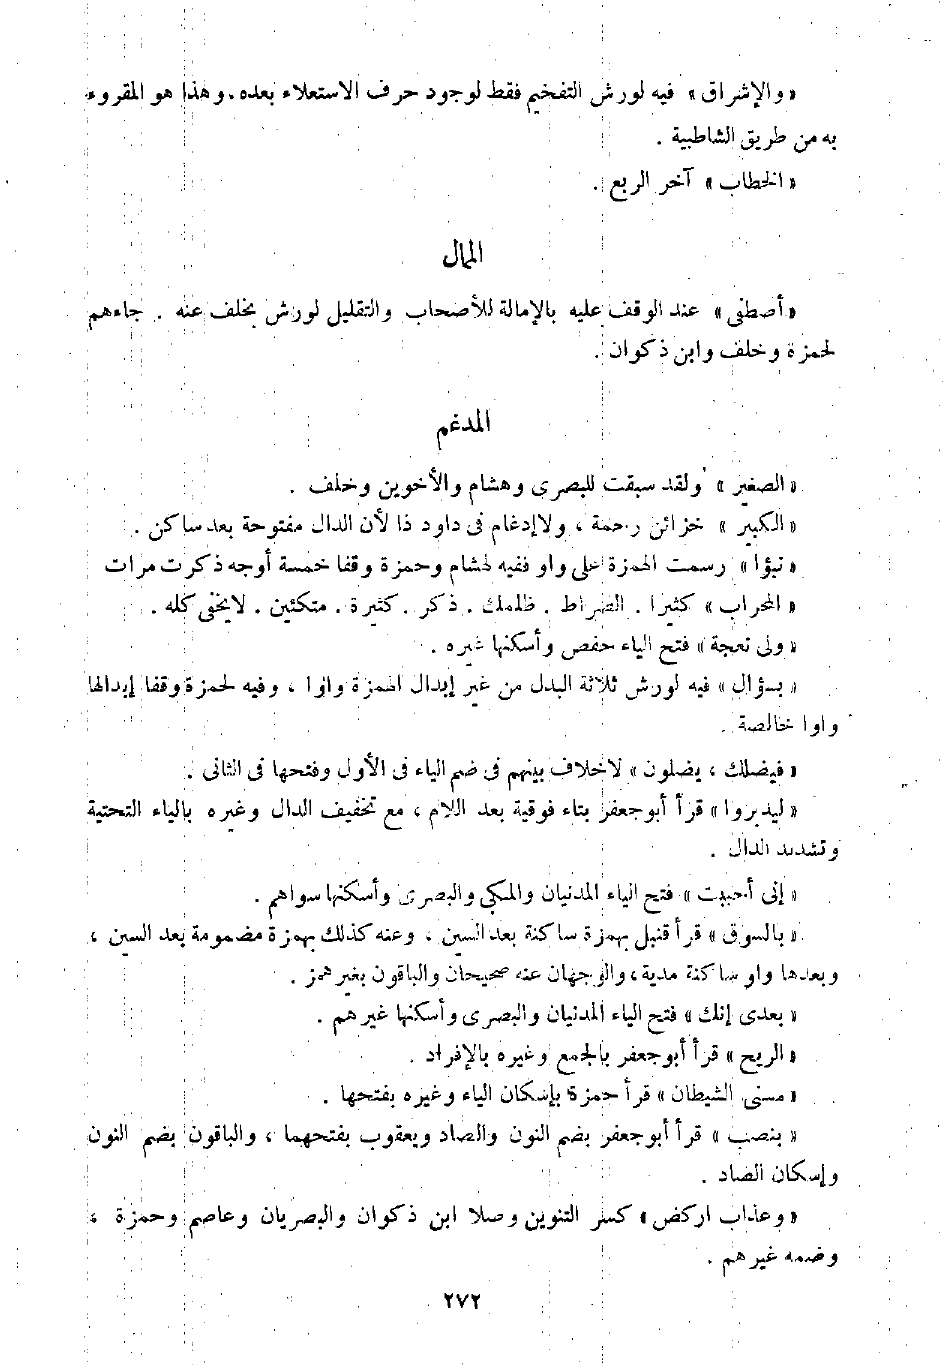 «والإشراق» فيه لورش التفخيم فقط لوجود حرف الاستعلاء بعده. وهذا هو المقروء
به من طريق الشاطبية .
«الخطاب» آخر الربع .
الممال
«أصطفى» عند الوقف عليه بالإمالة للأصحاب والتقليل لورش بخلف عنه . جاءهم
لحمزة وخلف وابن ذكوان .
المدغم
«الصغير» ولقد سبقت للبصرى وهشام والأخوين وخلف .
«الكبير» خزائن رحمة ، ولا إدغام فى داود ذا لأن الدال مفتوحة بعد ساكن .
«نبؤا» رسمت الهمزة على واو ففيه لهشام وحمزة وقفا خمسة أوجه ذكرت مرات
«المحراب» كثيرا . الصراط . ظلمك . ذكر . كثيرة . متكئين . لا يخفى كله .
«ولى نعجة» فتح الياء حفص وأسكنها غيره .
«بسؤال» فيه لورش ثلاثة البدل من غير إبدال الهمزة واوا ، وفيه لحمزة وقفا إبدالها
واوا خالصة .
«فيضلك ، يضلون» لا خلاف بينهم فى ضم الياء فى الأول وفتحها فى الثانى .
«ليدبروا» قرأ أبو جعفر بتاء فوقية بعد اللام ، مع تخفيف الدال وغيره بالياء التحتية
وتشديد الدال .
«إنى أحببت» فتح الياء المدنيان والمكى والبصرى وأسكنها سواهم .
«بالسوق» قرأ قنبل بهمزة ساكنة بعد السين ، وعنه كذلك بهمزة مضمومة بعد السين ،
وبعدها واو ساكنة مدية ، والوجهان عنه صحيحان والباقون بغير همز .
«بعدى إنك» فتح الياء المدنيان والبصرى وأسكنها غيرهم .
«الريح» قرأ أبو جعفر بالجمع وغيره بالإفراد .
«مسنى الشيطان» قرأ حمزة بإسكان الياء وغيره بفتحها .
«بنصب» قرأ أبو جعفر بضم النون والصاد ويعقوب بفتحهما ، والباقون بضم النون
وإسكان الصاد .
«وعذاب اركض» كسر التنوين وصلا ابن ذكوان والبصريان وعاصم وحمزة ،
وضمه غيرهم .
٢٧٢